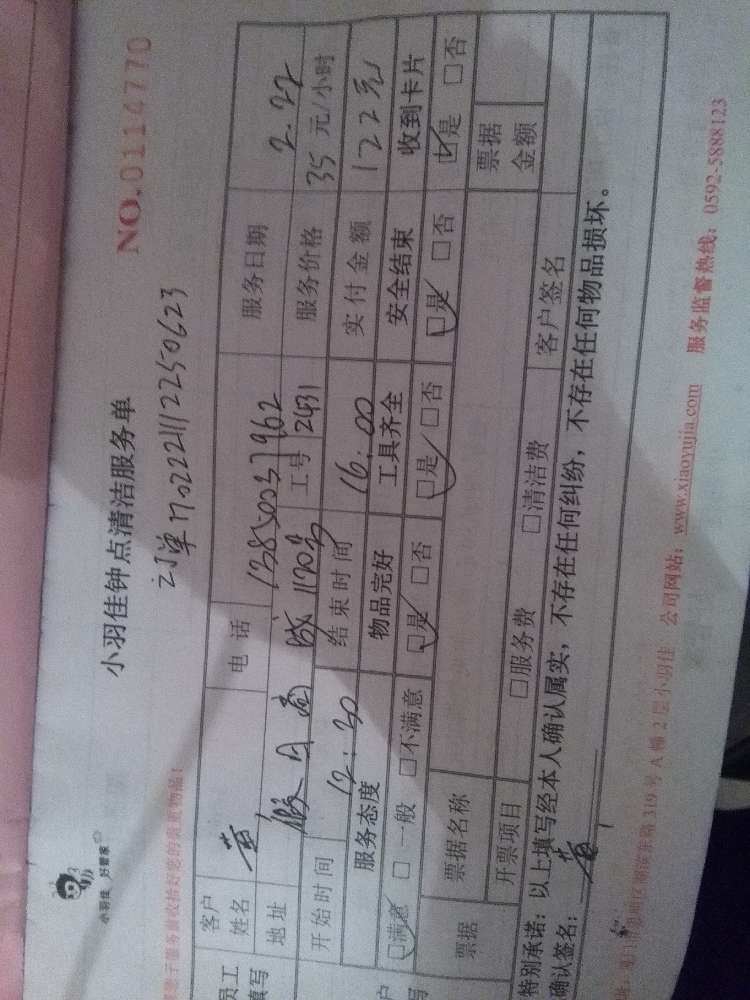 小羽佳 好管家
小羽佳钟点清洁服务单
NO.0114770
订单 1702221112250623
客户姓名 黄 电话 13850037962 服务日期 2.22
地址 工号 2431 服务价格 35元/小时
开始时间 12:30 结束时间 16:00 实付金额 122元
服务态度 物品完好 工具齐全 安全结束 收到卡片
☑满意 □一般 □不满意 ☑是 □否 ☑是 □否 ☑是 □否 ☑是 □否
票据 票据名称 票据金额
开票项目 □服务费 □清洁费 客户签名
特别承诺:以上填写经本人确认属实,不存在任何纠纷,不存在任何物品损坏。
确认签名: 黄
319号A幢2层小羽佳 公司网站:www.xiaoyujia.com 服务监督热线:0592-5888123